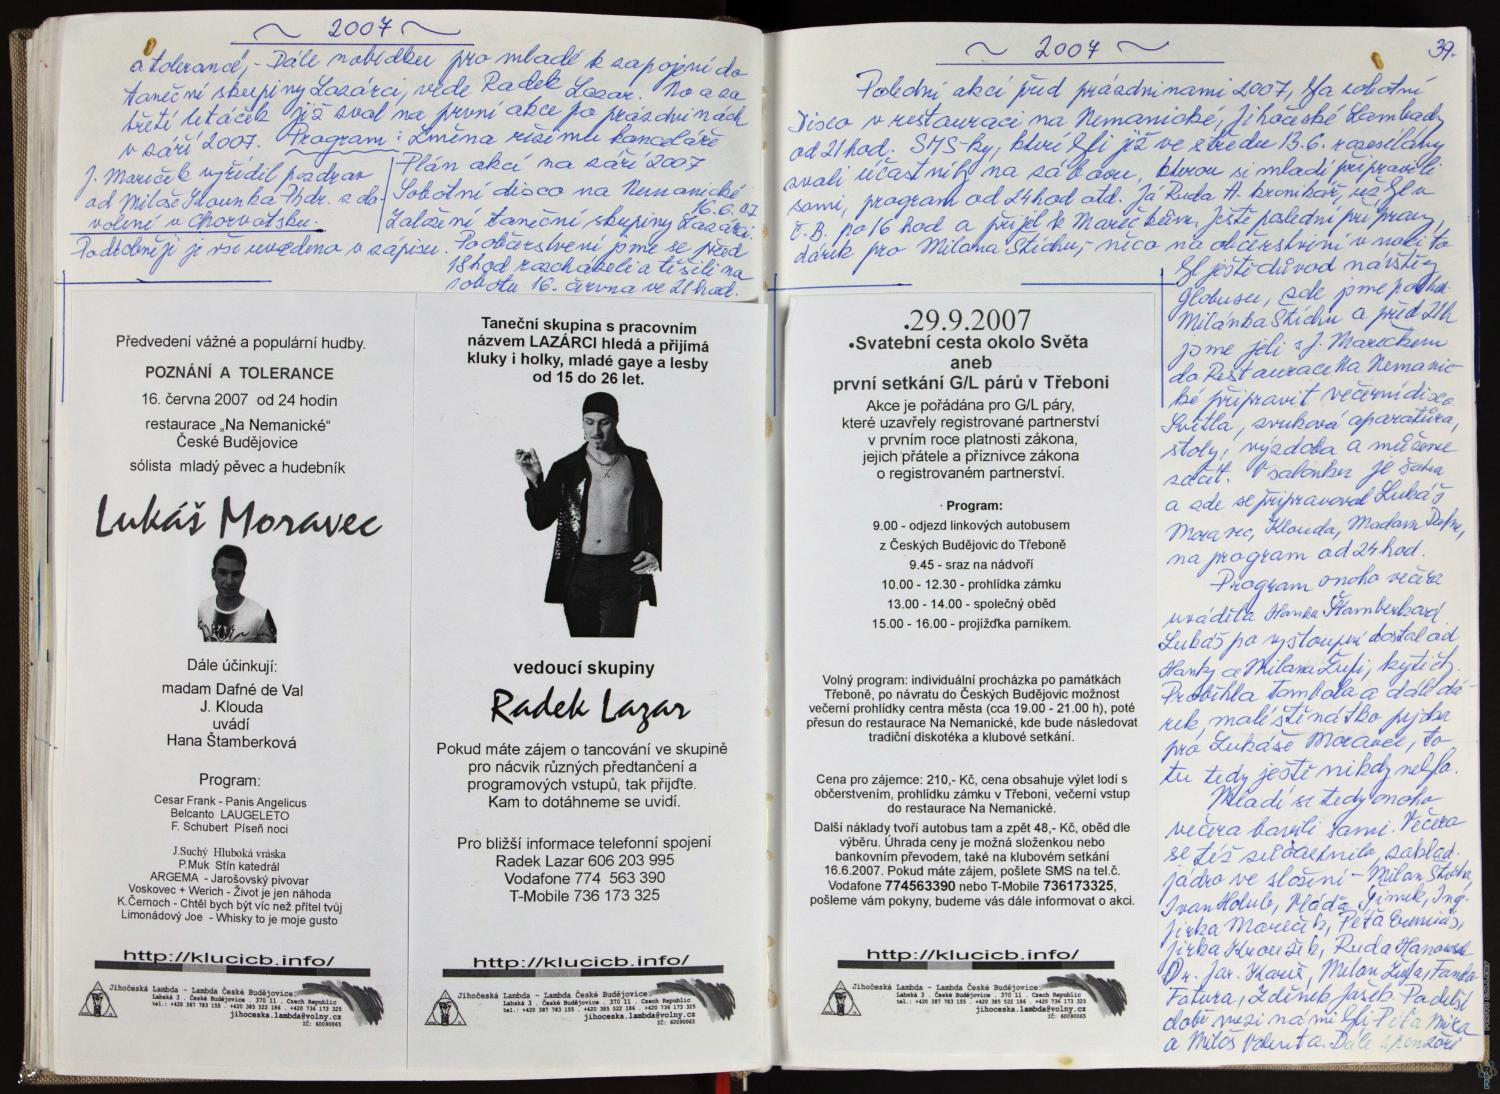 ~ 2007 ~
a tolerance, - Dále nabídku pro mladé k zapojení do
taneční skupiny Lazárci, vede Radek Lazar. No a za
třetí letáček již zval na první akce po prázdninách
v září 2007. Program: Změna režimu kanceláře
J. Mareček vyřídil pozdrav
od Miloše
volené v Chorvatsku.
Plán akcí na září 2007
Sobotní disco na Nemanické
16.6.07
Založení taneční skupiny Lazárci.
Podrobněji je vše uvedeno v zápisu.
Po občerstvení jsme se před
18 hod rozcházeli a těšili na
sobotu 16. června ve 21 hod.
Předvedení vážné a populární hudby.
POZNÁNÍ A TOLERANCE
16. června 2007 od 24 hodin
restaurace „Na Nemanické"
České Budějovice
sólista mladý pěvec a hudebník
Lukáš Moravec
Dále účinkují:
madam Dafné de Val
J. Klouda
uvádí
Hana Štamberková
Program:
Cesar Frank - Panis Angelicus
Belcanto LAUGELETO
F. Schubert Píseň noci
J.Suchý Hluboká vráska
P.Muk Stín katedrál
ARGEMA - Jarošovský pivovar
Voskovec + Werich - Život je jen náhoda
K.Černoch - Chtěl bych být víc než přítel tvůj
Limonádový Joe - Whisky to je moje gusto
http://klucicb.info/
Jihočeská Lambda - Lambda České Budějovice
Labská 3 . České Budějovice . 370 11 . Czech Republic
tel.: +420 387 783 155 . +420 385 522 186 . +420 736 173 325
jihoceska.lambda@volny.cz
IČ: 60090065
Taneční skupina s pracovním
názvem LAZÁRCI hledá a přijímá
kluky i holky, mladé gaye a lesby
od 15 do 26 let.
vedoucí skupiny
Radek Lazar
Pokud máte zájem o tancování ve skupině
pro nácvik různých předtančení a
programových vstupů, tak přijďte.
Kam to dotáhneme se uvidí.
Pro bližší informace telefonní spojení
Radek Lazar 606 203 995
Vodafone 774 563 390
T-Mobile 736 173 325
http://klucicb.info/
Jihočeská Lambda - Lambda České Budějovice
Labská 3 . České Budějovice . 370 11 . Czech Republic
tel.: +420 387 783 155 . +420 385 522 186 . +420 736 173 325
jihoceska.lambda@volny.cz
IČ: 60090065
~ 2007 ~
39.
Poslední akci před prázdninami 2007, byla sobotní
Disco v restauraci na Nemanické, jihočeské Lambdy
od 21 hod. SMS-ky, které byli již ve středu 13.6. rozesílány
zvali účastníky na zábavu, kterou si mladí připravili
sami, program od 24 hod atd. Já Ruda H. kronikář, už byl v
Č.B. po 16 hod a přijel k Marečkům. Ještě poslední přípravy,
dárek pro Milana Štichu, - něco na občerstvení v nákl to
byl ještě důvod návštěvy
Globusu, zde jsme
Milánka Štichu a před 21h
jsme jeli s J. Marečkem
do Restaurace Na Nemanic-
ké připravit večerní disco
Světla, zvuková aparatura,
stoly, výzdoba a můžeme
začít. V salonku je šatna
a zde se připravoval Lukáš
Moravec, Klouda, Madam Dafne,
na program od 24 hod.
Program onoho večera
uváděla Hanka Štamberková
Lukáš po vystoupení dostal od
Hanky a Milana kytici.
Proběhla tombola a dále dá-
rek, malé štěňátko pejska
pro Lukáše Moravce, to
tu tedy ještě nikdy nebylo.
Mladí se tedy onoho
večera bavili sami. Večera
se též zúčastnilo, základ.
jádro ve složení - Milan Šticha,
Ivan Holub, Vláďa Ing.
Jirka Mareček, Péťa
Jirka Ruda
Dr. Jar. Milan Fanda
Fatura, Zdeněk Jašek. Po delší
době mezi námi byli Péťa Mika
a Miloš Valenta. Dále sponzoři
.29.9.2007
•Svatební cesta okolo Světa
aneb
první setkání G/L párů v Třeboni
Akce je pořádána pro G/L páry,
které uzavřely registrované partnerství
v prvním roce platnosti zákona,
jejich přátele a příznivce zákona
o registrovaném partnerství.
Program:
9.00 - odjezd linkových autobusem
z Českých Budějovic do Třeboně
9.45 - sraz na nádvoří
10.00 - 12.30 - prohlídka zámku
13.00 - 14.00 - společný oběd
15.00 - 16.00 - projížďka parníkem.
Volný program: individuální procházka po památkách
Třeboně, po návratu do Českých Budějovic možnost
večerní prohlídky centra města (cca 19.00 - 21.00 h), poté
přesun do restaurace Na Nemanické, kde bude následovat
tradiční diskotéka a klubové setkání.
Cena pro zájemce: 210,- Kč, cena obsahuje výlet lodí s
občerstvením, prohlídku zámku v Třeboni, večerní vstup
do restaurace Na Nemanické.
Další náklady tvoří autobus tam a zpět 48,- Kč, oběd dle
výběru. Úhrada ceny je možná složenkou nebo
bankovním převodem, také na klubovém setkání
16.6.2007. Pokud máte zájem, pošlete SMS na tel.č.
Vodafone 774563390 nebo T-Mobile 736173325,
pošleme vám pokyny, budeme vás dále informovat o akci.
http://klucicb.info/
Jihočeská Lambda - Lambda České Budějovice
Labská 3 . České Budějovice . 370 11 . Czech Republic
tel.: +420 387 783 155 . +420 385 522 186 . +420 736 173 325
jihoceska.lambda@volny.cz
IČ: 60090065